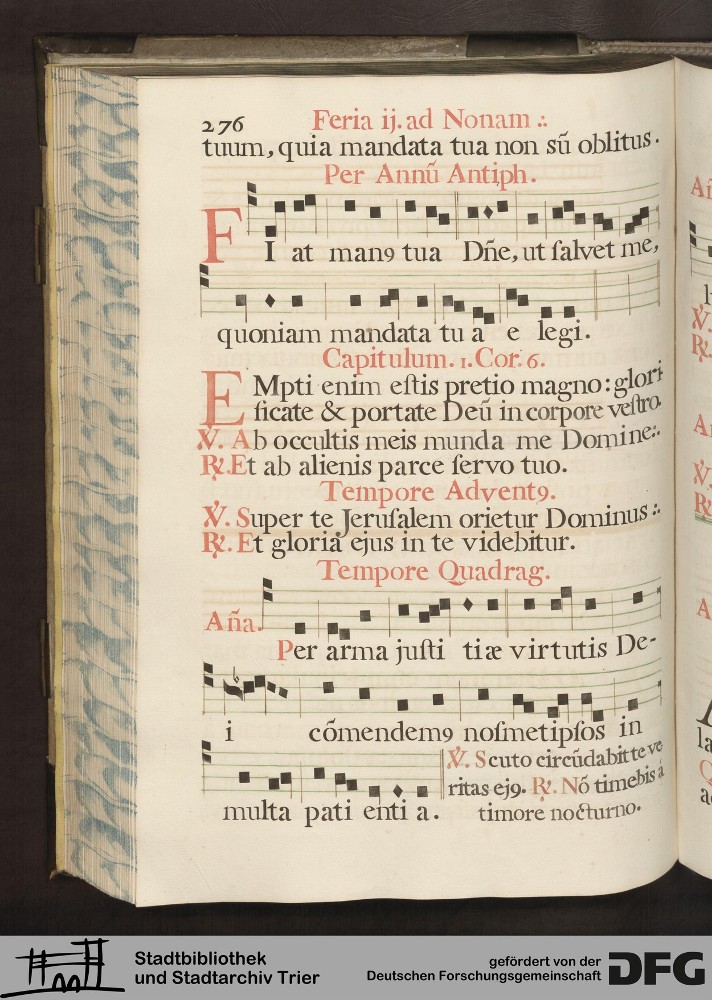 276 Feria ij. ad Nonam .:
tuum, quia mandata tua non sū oblitus.
Per Annū Antiph.
FI at manꝰ tua Dn̄e, ut ſalvet me,
quoniam mandata tu a e legi.
Capitulum. 1. Cor. 6.
EMpti enim eſtis pretio magno: glori
ficate & portate Deū in corpore veſtro.
℣. Ab occultis meis munda me Domine:.
℟. Et ab alienis parce ſervo tuo.
Tempore Adventꝰ.
℣. Super te Jeruſalem orietur Dominus :.
℟. Et gloria ejus in te videbitur.
Tempore Quadrag.
An̄a. Per arma juſti tiæ virtutis De-
i cōmendemꝰ noſmetipſos in
multa pati enti a.
℣. Scuto circūdabit te ve
ritas ejꝰ. ℟. Nō timebis á
timore nocturno.
Stadtbibliothek
und Stadtarchiv Trier
gefördert von der
Deutschen Forschungsgemeinschaft
DFG